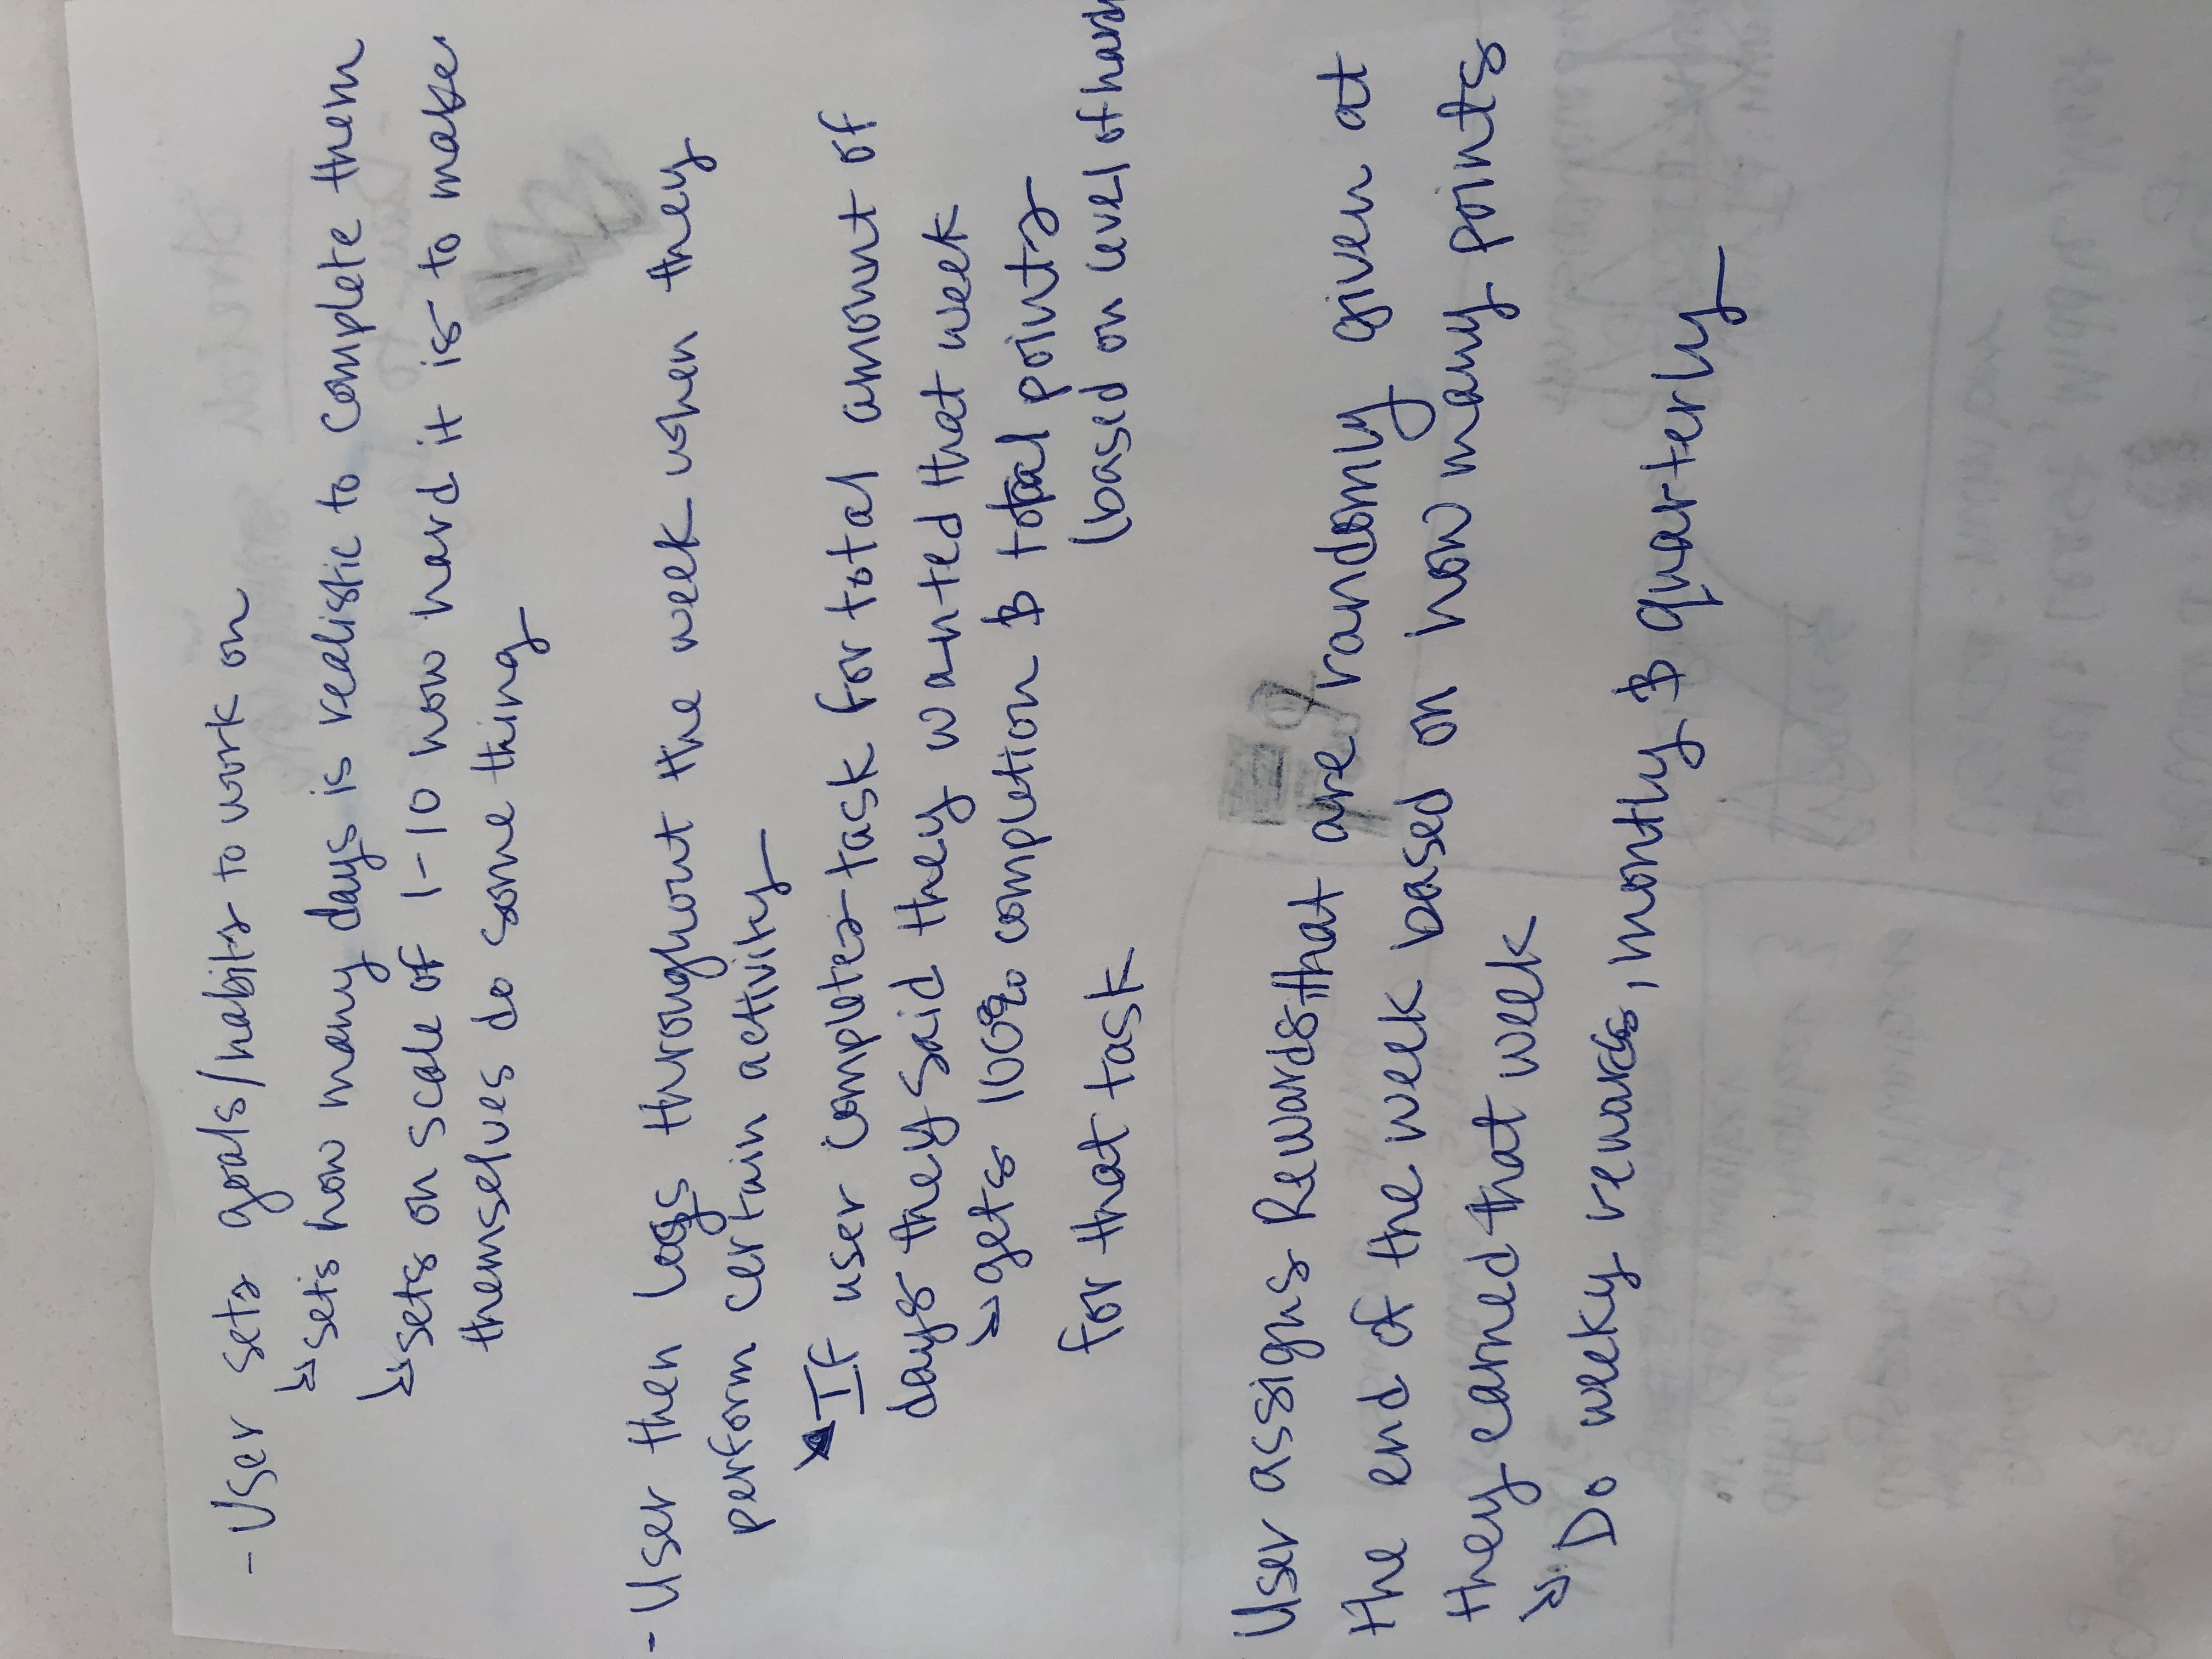 - User sets goals/habits to work on
↳ sets how many days is realistic to complete them
↳ sets on scale of 1-10 how hard it is to make
themselves do some thing
- User then logs throughout the week when they
perform certain activity
↳ If user completes task for total amount of
days they said they wanted that week
↳ gets 100% completion & total points
for that task (based on level of hard
User assigns Rewards, that are randomly given at
the end of the week based on how many points
they earned that week
↳ Do weeky rewards, montly & quarterly